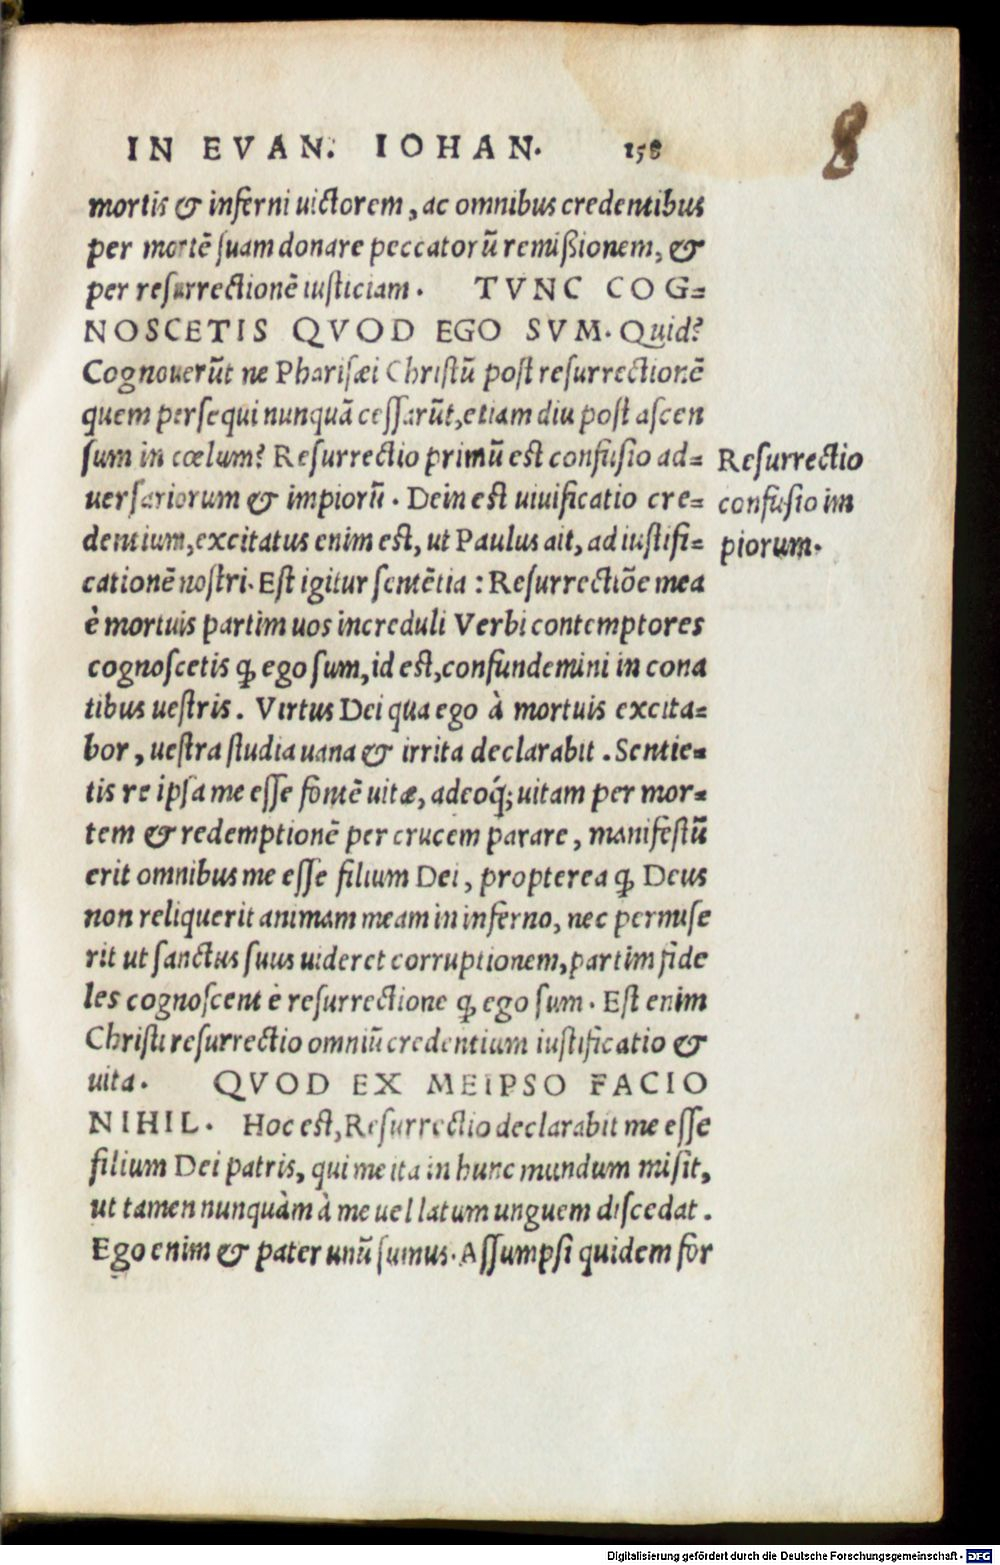 IN EVAN. IOHAN. 158
8
mortis & inferni uictorem, ac omnibus credentibus
per mortē suam donare peccatorū remißionem, &
per resurrectionē iusticiam. TVNC COG=
NOSCETIS QVOD EGO SVM. Quid?
Cognouerūt ne Pharisæi Christū post resurrectionē
quem persequi nunquā cessarūt, etiam diu post ascen
sum in cœlum? Resurrectio primū est confusio ad=
uersariorum & impiorū. Dein est uiuificatio cre=
dentium, excitatus enim est, ut Paulus ait, ad iustifi=
cationē nostri. Est igitur sentētia: Resurrectiōe mea
è mortuis partim uos increduli Verbi contemptores
cognoscetis ꝙ ego sum, id est, confundemini in cona
tibus uestris. Virtus Dei qua ego à mortuis excita=
bor, uestra studia uana & irrita declarabit. Sentie=
tis re ipsa me esse fontē uitæ, adeoq́; uitam per mor=
tem & redemptionē per crucem parare, manifestū
erit omnibus me esse filium Dei, propterea ꝙ Deus
non reliquerit animam meam in inferno, nec permise
rit ut sanctus suus uideret corruptionem, partim fide
les cognoscent è resurrectione ꝙ ego sum. Est enim
Christi resurrectio omniū credentium iustificatio &
uita. QVOD EX MEIPSO FACIO
NIHIL. Hoc est, Resurrectio declarabit me esse
filium Dei patris, qui me ita in hunc mundum misit,
ut tamen nunquàm à me uel latum unguem discedat.
Ego enim & pater unū sumus. Assumpsi quidem for
Resurrectio
confusio im
piorum.
Digitalisierung gefördert durch die Deutsche Forschungsgemeinschaft - DFG